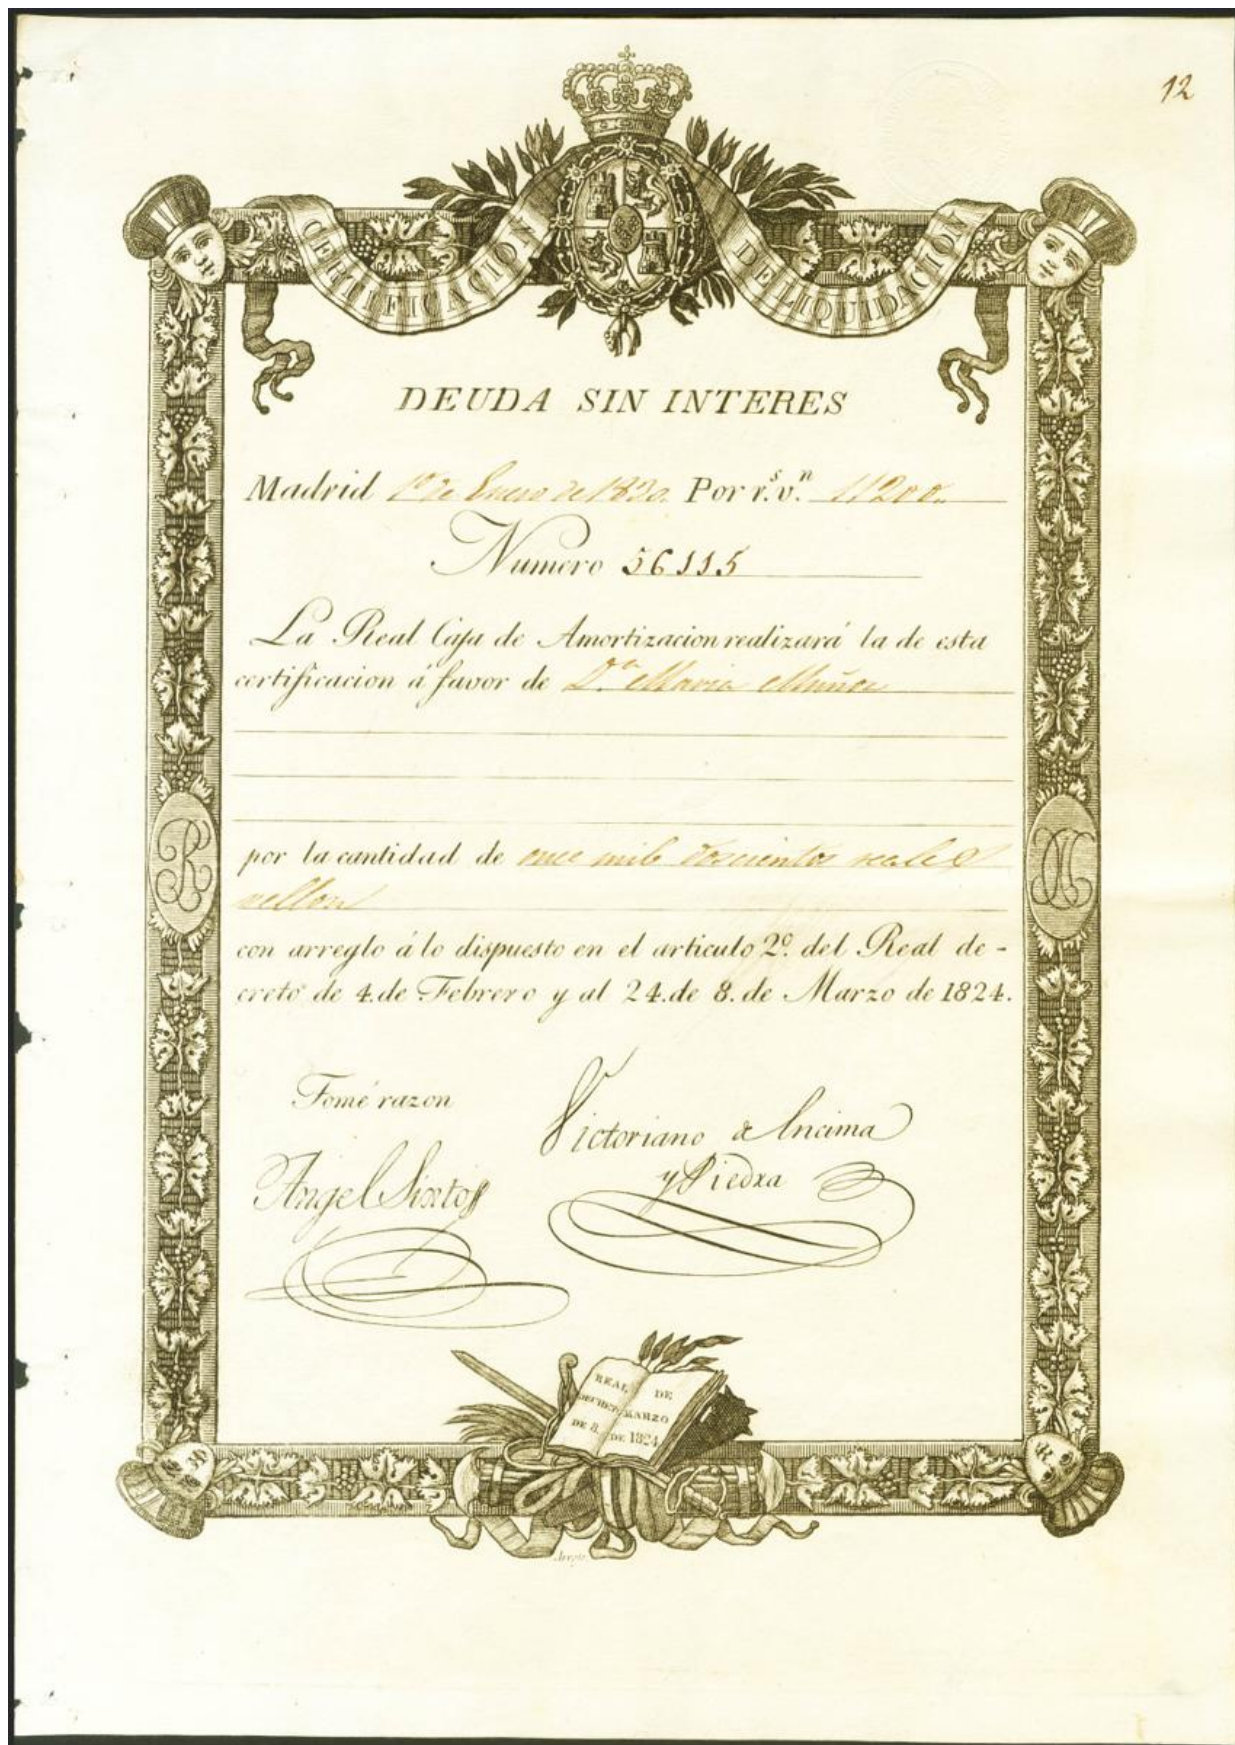 12
CERTIFICACION DE LIQUIDACION
DEUDA SIN INTERES
Madrid 1º de Enero de 1830. Por r.s v.n 11200..
Numero 56115
La Real Caja de Amortizacion realizará la de esta
certificacion á favor de D.a Maria Muñoz
por la cantidad de once mil doscientos reales
vellon
con arreglo á lo dispuesto en el articulo 2º. del Real de-
creto de 4. de Febrero y al 24. de 8. de Marzo de 1824.
Tomé razon
Victoriano de Encima
y Piedra
Angel Sixtos
REAL DECRETO DE 8. DE MARZO DE 1824